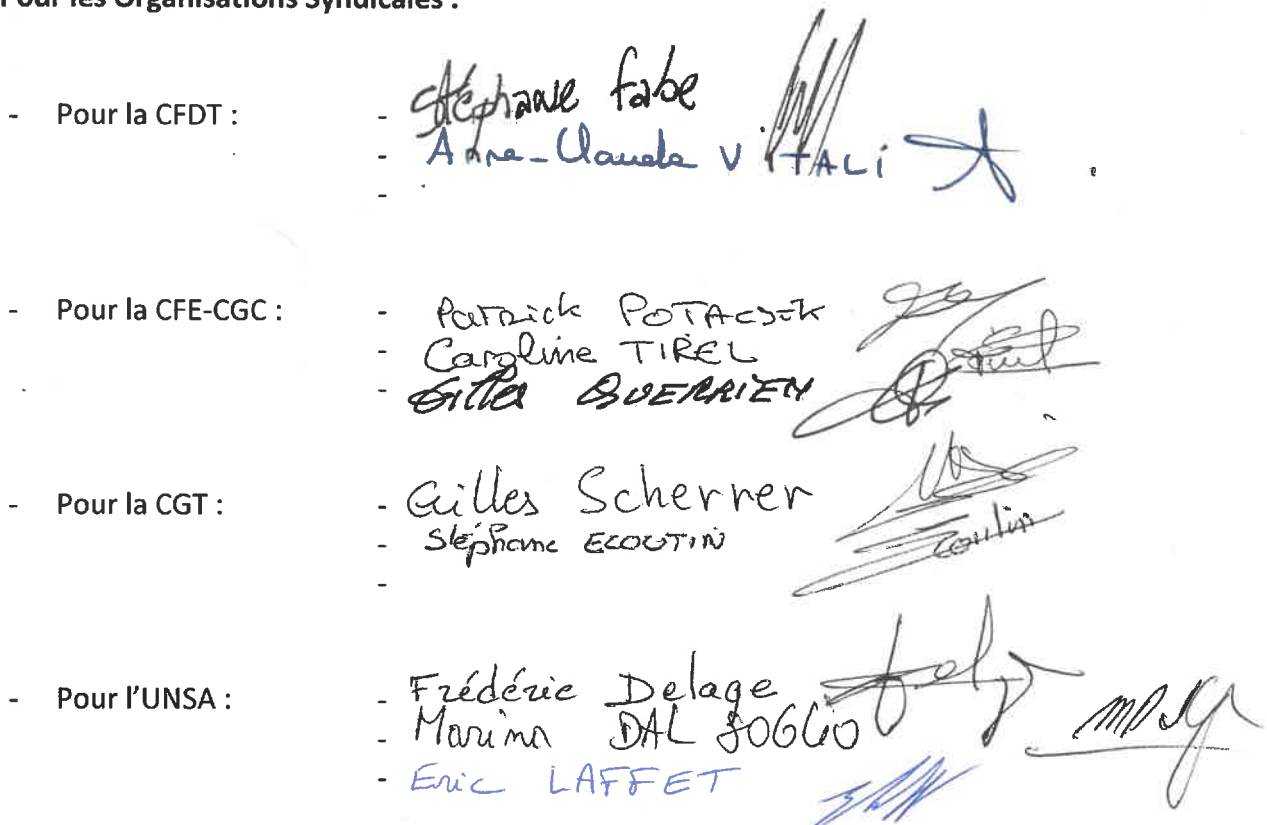 Pour les Organisations Syndicales :
- Pour la CFDT : - Stéphane Fabe
- Anne-Claude VITALI
-
- Pour la CFE-CGC : - Patrick POTACSEK
- Caroline TIREL
- Gilles GUERRIEN
- Pour la CGT : - Gilles Scherrer
- Stéphane ECOUTIN
-
- Pour l'UNSA : - Frédéric Delage
- Marina DAL SOGLIO
- Eric LAFFET